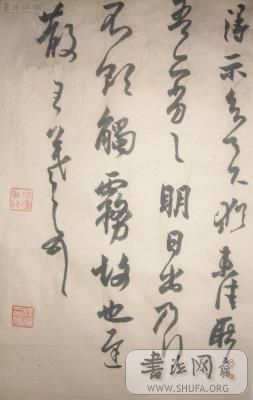 得示知足下猶未佳耿
吾亦劣〻明日出乃行
不欲觸霧故也遲
散王羲之頓首
书法网
WWW.SHUFA.ORG